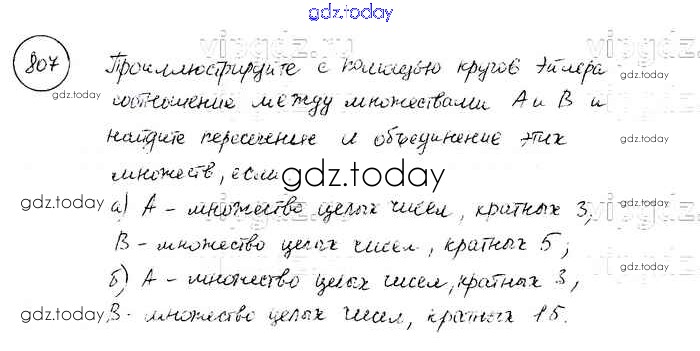 gdz.today
807
Проиллюстрируйте с помощью кругов Эйлера
соотношение между множествами А и В и
найдите пересечение и объединение этих
множеств, если
а) А - множество целых чисел, кратных 3,
В - множество целых чисел, кратных 5;
б) А - множество целых чисел, кратных 3,
В - множество целых чисел, кратных 15.
gdz.today
gdz.today
gdz.today
gdz.today
gdz.today
gdz.today
gdz.today
gdz.today